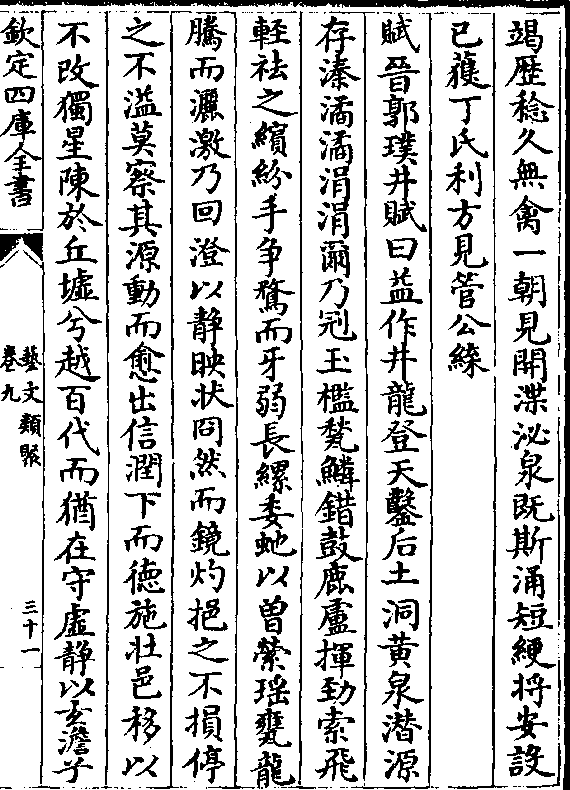 竭歴稔久無禽一朝見開渫泌泉既斯涌短綆将安設
已蒦丁氏利方見管公緣
賦晉郭璞井賦曰益作井龍登天鑿后土洞黄泉潛源
存溱潏潏涓涓爾乃冠玉檻甃鱗錯鼓鹿盧揮勁索飛
輕袪之繽紛手争鶩而牙弱長縲委虵以曾縈瑶甕龍
騰而灑激乃回澄以静映状冏然而鏡灼挹之不損停
之不溢莫察其源動而愈出信潤下而徳施壮邑移以
不改獨星陳於丘墟兮越百代而猶在守虚静以玄澹于
欽定四庫全書
藝文類聚
卷九
三十一